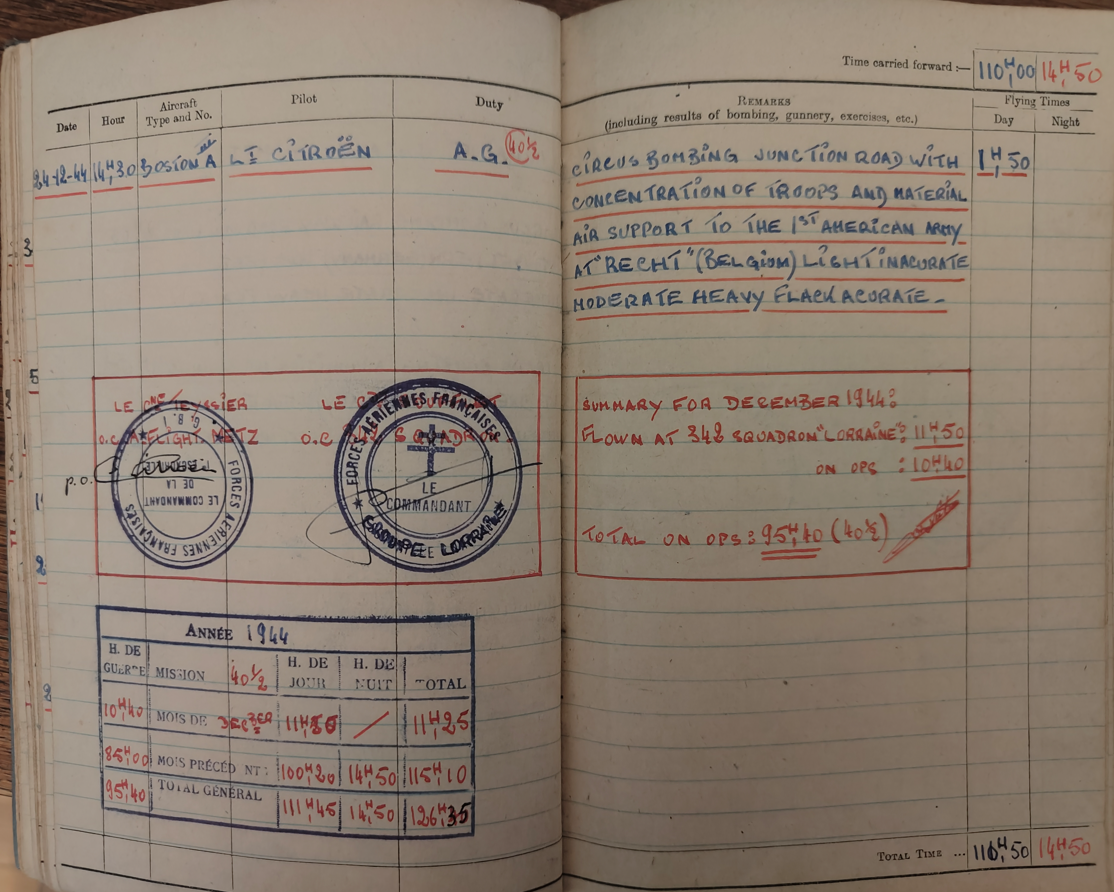 Time carried forward :— 110H00 14H50
Date Hour Aircraft Type and No. Pilot Duty
REMARKS
(including results of bombing, gunnery, exercises, etc.)
Flying Times
Day Night
24-12-44 14H30 BOSTON A LT CITROËN A.G. 40½
CIRCUS BOMBING JUNCTION ROAD WITH 1H50
CONCENTRATION OF TROOPS AND MATERIAL
AIR SUPPORT TO THE 1ST AMERICAN ARMY
AT "RECHT" (BELGIUM) LIGHT INACURATE
MODERATE HEAVY FLACK ACURATE –
LE CNE TEYSSIER
O.C A FLIGHT METZ
p.o.
G.B. 1
FORCES AÉRIENNES FRANÇAISES
LE COMMANDANT
DE LA
LE
O.C 342 SQUADRON
FORCES AÉRIENNES FRANÇAISES
LE
COMMANDANT
LORRAINE
SUMMARY FOR DECEMBER 1944:
FLOWN AT 342 SQUADRON "LORRAINE": 11H50
ON OPS : 10H40
TOTAL ON OPS : 95H40 (40½)
ANNÉE 1944
H. DE GUERRE MISSION 40½ H. DE JOUR H. DE NUIT TOTAL
10H40 MOIS DE DECBER / 11H25
85H00 MOIS PRÉCÉD NT : 100H20 14H50 115H10
95H40 TOTAL GÉNÉRAL 111H45 14H50 126H35
TOTAL TIME ... 111H50 14H50